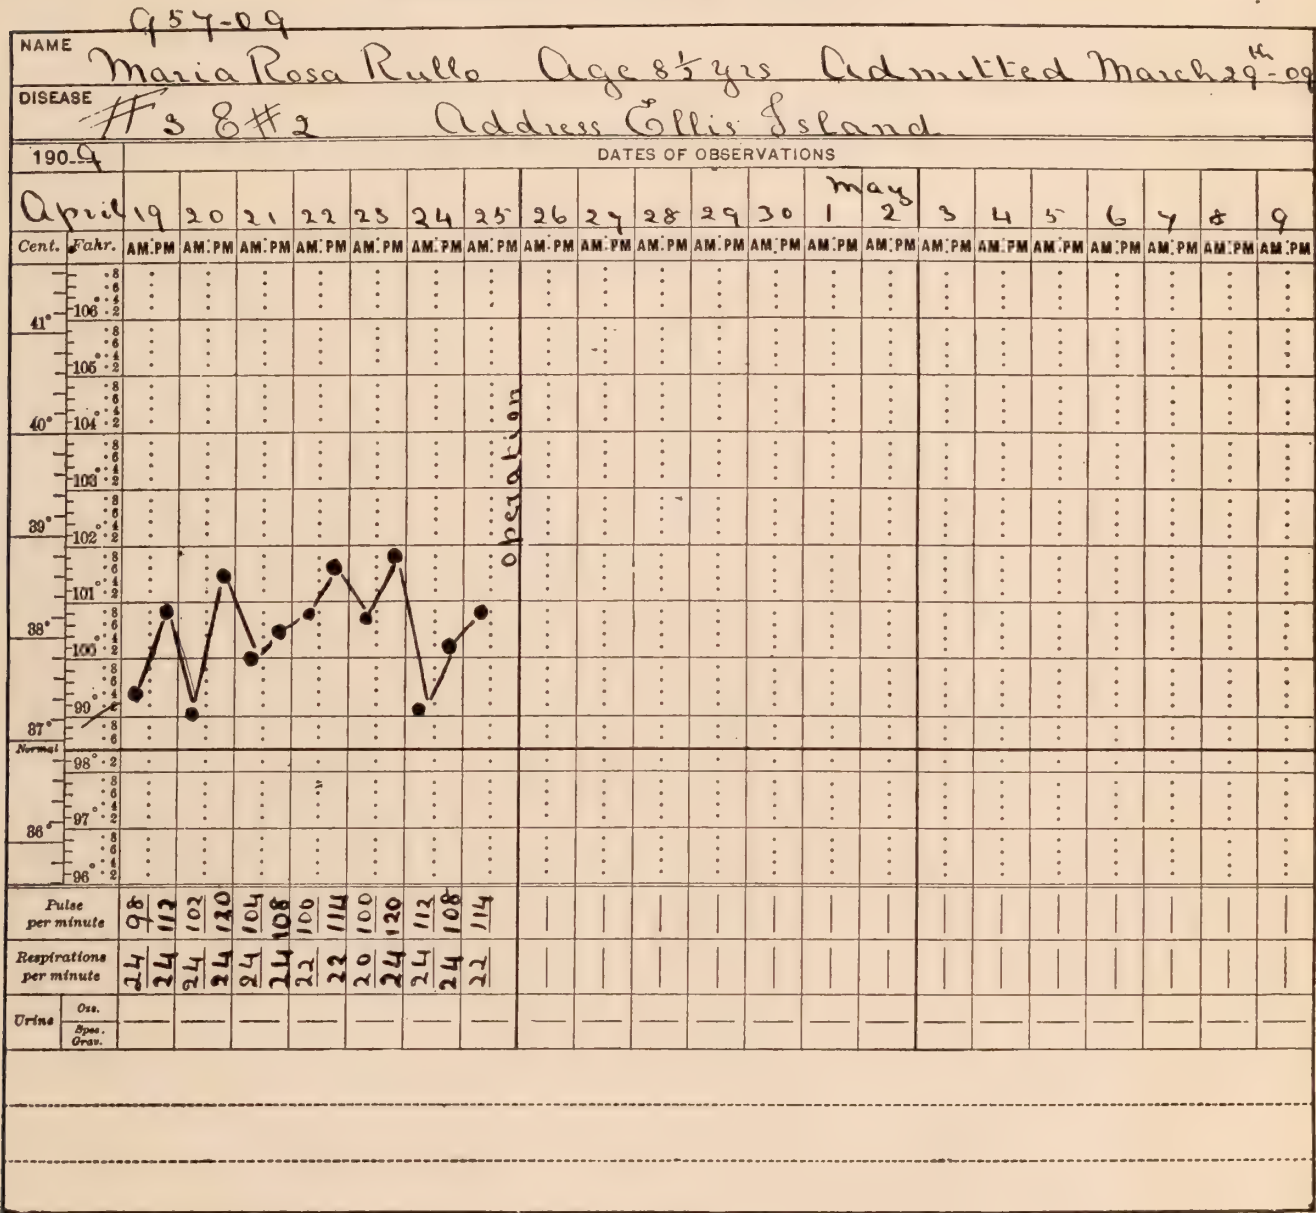 957-09
NAME Maria Rosa Rullo Age 8½ yrs Admitted March 29th-09
DISEASE #3 E#2 Address Ellis Island
190 9 DATES OF OBSERVATIONS
April 19 20 21 22 23 24 25 26 27 28 29 30 May 1 2 3 4 5 6 7 8 9
Cent. Fahr. AM PM AM PM AM PM AM PM AM PM AM PM AM PM AM PM AM PM AM PM AM PM AM PM AM PM AM PM AM PM AM PM AM PM AM PM AM PM AM PM AM PM
8
6
4
106° 2
41°
8
6
4
105° 2
8
6
4
40° 104° 2
8
6
4
103° 2
8
6
39° 4
102° 2
8
6
4
101° 2
8
38° 6
4
100° 2
8
6
4
99° 2
37° 8
6
Normal
98° 2
8
6
4
97° 2
36° 8
6
4
96° 2
operation
Pulse per minute 98 112 102 120 104 108 100 114 100 120 112 108 114
Respirations per minute 24 24 24 24 24 24 22 22 20 24 24 24 22
Urine Ozs.
Spec. Grav.